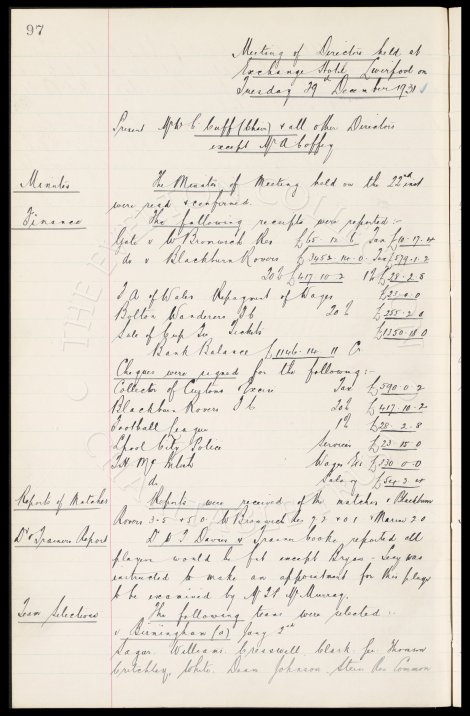 97
Meeting of Directors held at
Exchange Hotel Liverpool on
Tuesday 29 December 1931
Present Mr W C Cuff (Chair) & all other Directors
except Mr A Coffey
Minutes The Minutes of Meeting held on the 22nd inst
were read & confirmed.
Finance The following receipts were reported:-
Gate v W Bromwich Res £65-12-6 Tax £10-17-4
do v Blackburn Rovers £3452-14-0 Tax £579-1-2
20% £417-10-2 1% £28-2-8
F A of Wales Repayment of Wages £23-0-0
Bolton Wanderers F C 20% £255-2-0
Sale of Cup Tie Tickets £1350-18-0
Bank Balance £1146-14-11 Cr
Cheques were signed for the following:-
Collector of Customs Excise Tax £590-0-2
Blackburn Rovers F C 20% £417-10-2
Football League 1% £28-2-8
Lpool City Police Services £23-15-0
T H McIntosh Wages £330-0-0
do Salary
Reports of Matches Reports were received of the matches v Blackburn
Rovers 3-5 & 5-0 W Bromwich Res 7-2 & 0-1 v 2-0
Dr & Trainers Report Dr & Trainer Cooke reported all
players would be fit except Bryan - Secy was
instructed to make an appointment for this player
to be examined by Mr McMurray.
Team Selections The following team were elected:-
v Birmingham (a) Jany 2nd
Sagar. Williams. Cresswell. Clark. Gee. Thomson
Critchley, White. Dean Johnson. Stein Res Common